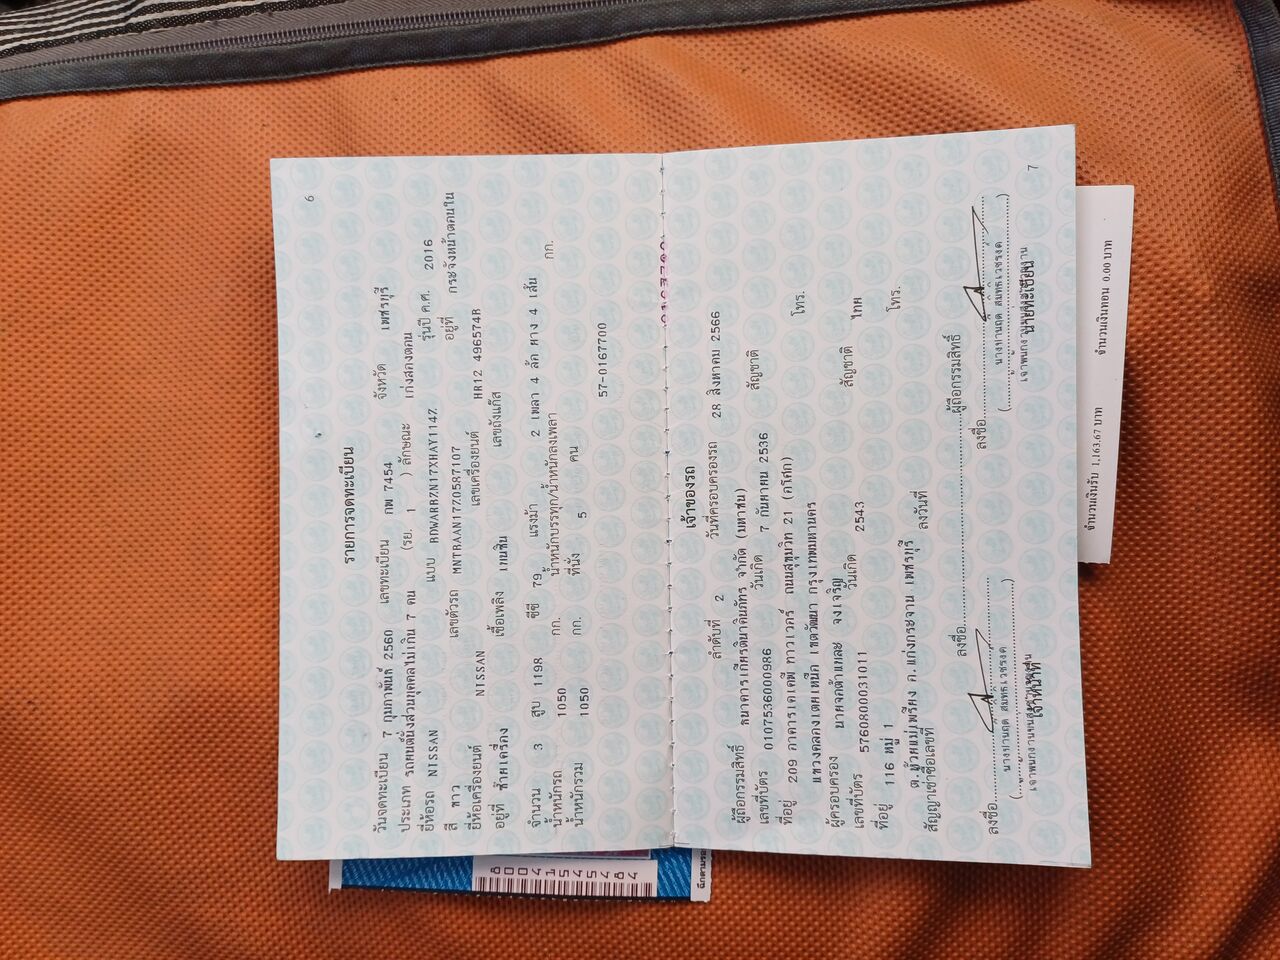 6
รายการจดทะเบียน
วันจดทะเบียน 7 กุมภาพันธ์ 2560 เลขทะเบียน กพ 7454 จังหวัด เพชรบุรี
ประเภท รถยนต์นั่งส่วนบุคคลไม่เกิน 7 คน (รย. 1 ) ลักษณะ เก๋งสองตอน
ยี่ห้อรถ NISSAN แบบ BDWARBZN17XHAY114Z รุ่นปี ค.ศ. 2016
สี ขาว เลขตัวรถ MNTBAAN17Z0587107 อยู่ที่ กระจังหน้าตอนใน
ยี่ห้อเครื่องยนต์ NISSAN เลขเครื่องยนต์ HR12 496574B
อยู่ที่ ซ้ายเครื่อง เชื้อเพลิง เบนซิน เลขถังแก๊ส
จำนวน 3 สูบ 1198 ซีซี 79 แรงม้า 2 เพลา 4 ล้อ ยาง 4 เส้น
น้ำหนักรถ 1050 กก. น้ำหนักบรรทุก/น้ำหนักลงเพลา กก.
น้ำหนักรวม 1050 กก. ที่นั่ง 5 คน
57-0167700
เจ้าของรถ
ลำดับที่ 2 วันที่ครอบครองรถ 28 สิงหาคม 2566
ผู้ถือกรรมสิทธิ์ ธนาคารเกียรตินาคินภัทร จำกัด (มหาชน)
เลขที่บัตร 0107536000986 วันเกิด 7 กันยายน 2536 สัญชาติ
ที่อยู่ 209 อาคารเคเคพี ทาวเวอร์ ถนนสุขุมวิท 21 (อโศก) โทร.
แขวงคลองเตยเหนือ เขตวัฒนา กรุงเทพมหานคร
ผู้ครอบครอง จงเจริญ
เลขที่บัตร 5760800031011 วันเกิด 2543 สัญชาติ ไทย
ที่อยู่ 116 หมู่ 1 โทร.
ต.ห้วยแม่เพรียง อ.แก่งกระจาน เพชรบุรี
สัญญาเช่าซื้อเลขที่ ลงวันที่
ลงชื่อ ผู้ถือกรรมสิทธิ์
ลงชื่อ ลงชื่อ
เจ้าหน้าที่ นายทะเบียน
7
จำนวนเงินรับ 1,163.67 บาท จำนวนเงินทอน 0.00 บาท
8004154584